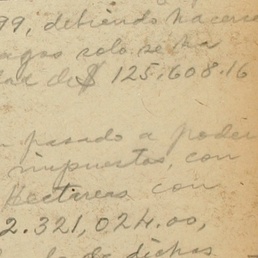 99, debiendo hacerse
pagos solo se ha
dad de $ 125.608.16
pasado a poder
impuestos, con
Hectareas con
2.321,024.00,
de dichas